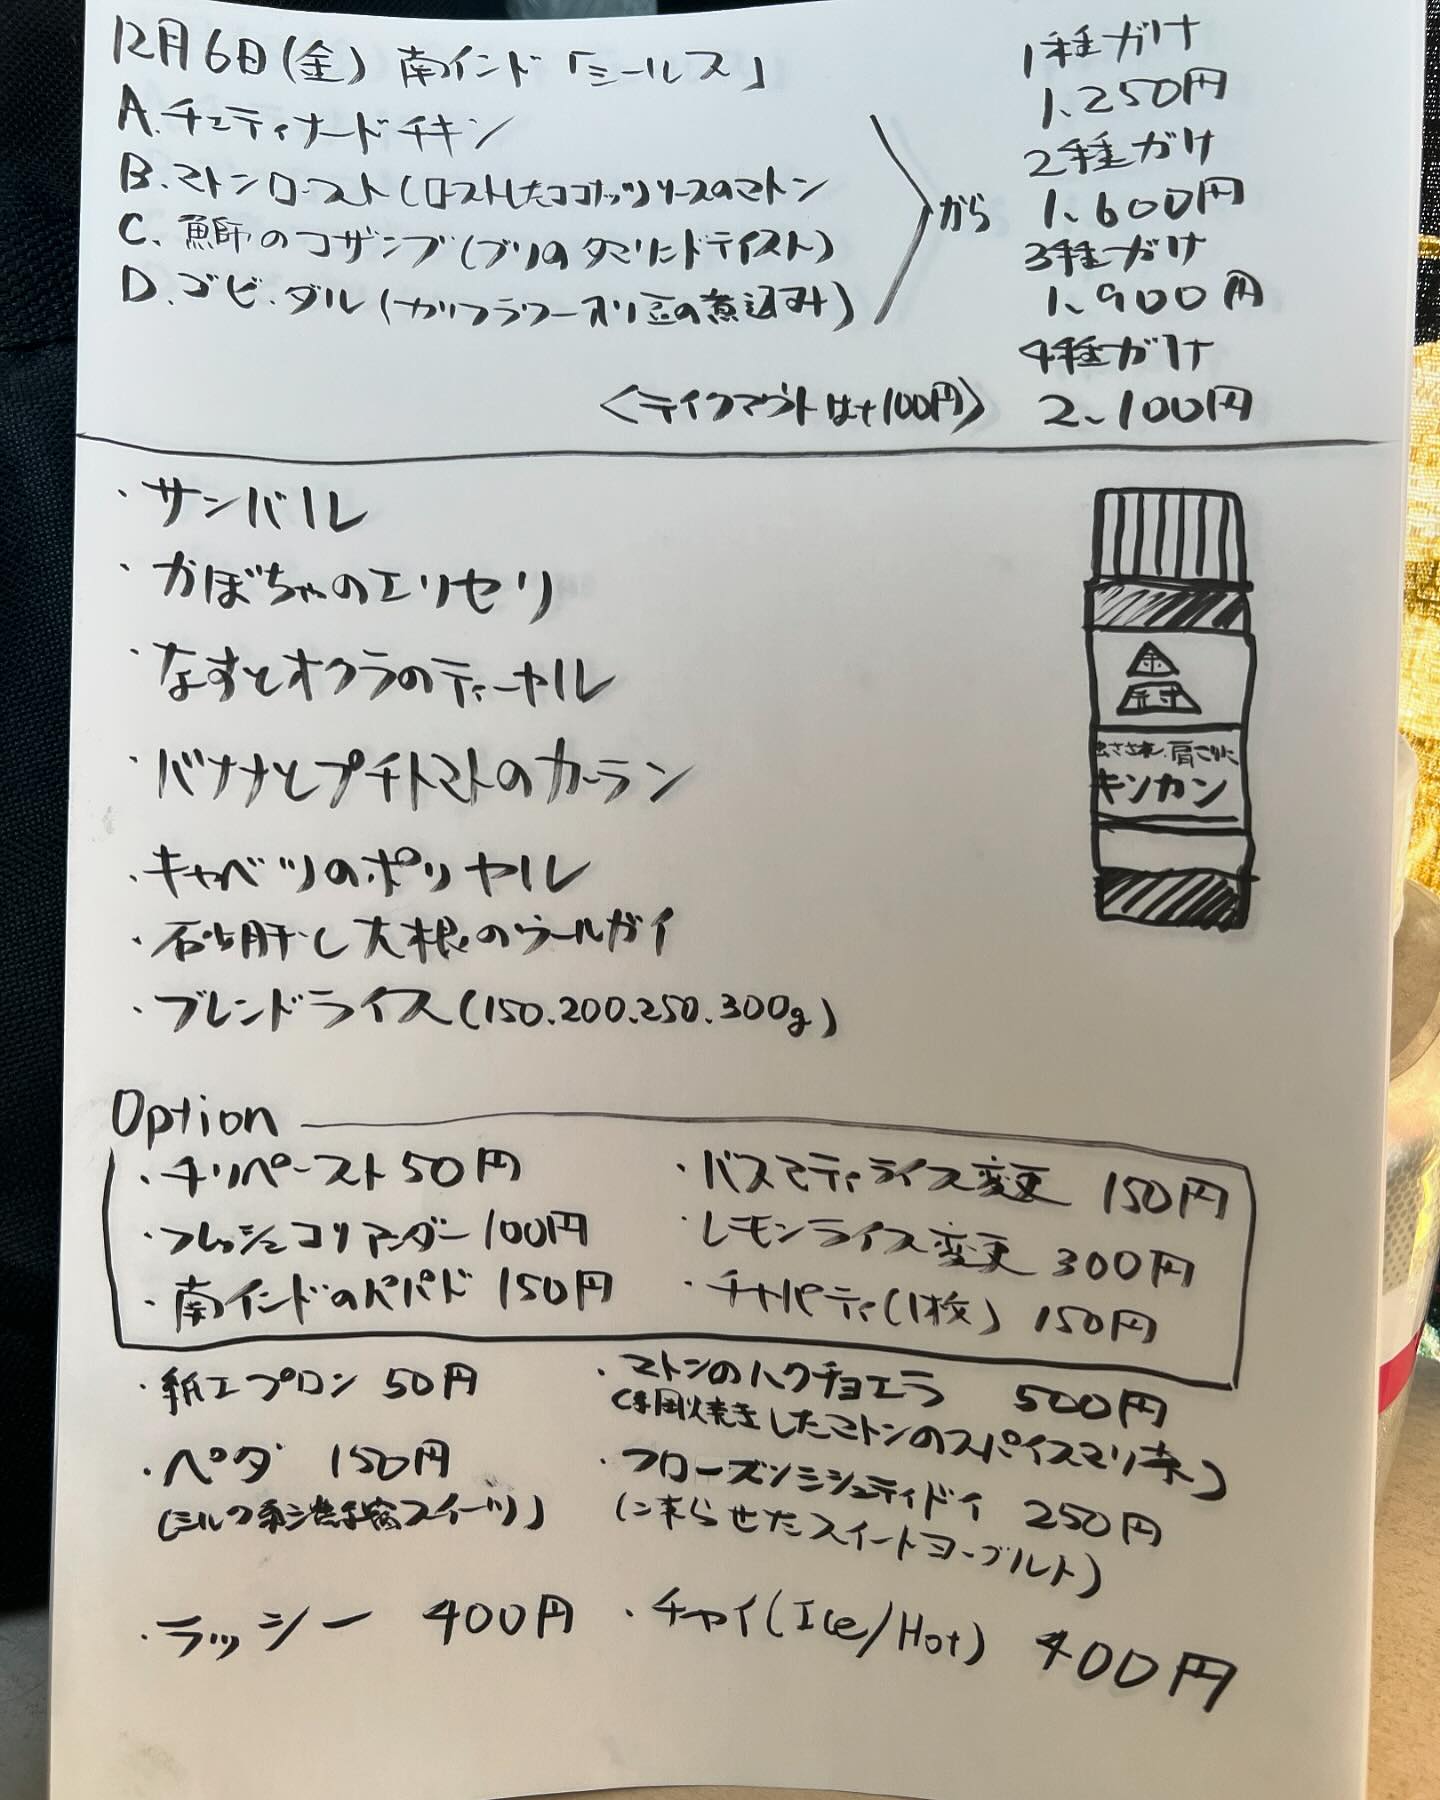 12月6日(金) 南インド「ミールス」
A.チェティナードチキン
B.マトンロースト(ローストしたココナッツソースのマトン
C.鰤のコザンブ(ブリのタマリンドテイスト)
D.ゴビ・ダル(カリフラワー入り豆の煮込み)
から
1種がけ
1,250円
2種がけ
1,600円
3種がけ
1,900円
4種がけ
2,100円
<テイクアウトは+100円>
・サンバル
・かぼちゃのエリセリ
・なすとオクラのティーヤル
・バナナとプチトマトのカーラン
・キャベツのポリヤル
・砂肝と大根のウールガイ
・ブレンドライス(150.200.250.300g)
金
冠
虫さされ・肩こりに
キンカン
Option
・チリペースト 50円
・フレッシュコリアンダー 100円
・南インドのパパド 150円
・バスマティライス変更 150円
・レモンライス変更 300円
・チャパティ(1枚) 150円
・紙エプロン 50円
・ペダ 150円
(ミルク系スイーツ)
・マトンのハクチョエラ 500円
したマトンのスパイスマリネ)
・フローズンミシュティドイ 250円
(凍らせたスイートヨーグルト)
・ラッシー 400円
・チャイ(Ice/Hot) 400円